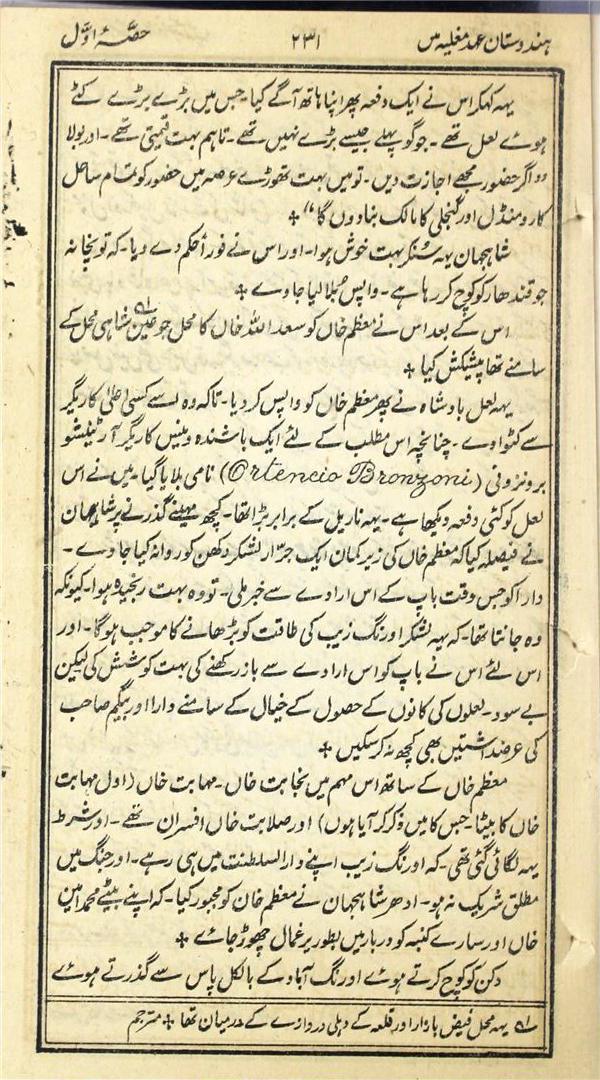 ہندوستان عہد مغلیہ میں ۲۳۱ حصّۂ اوّل
یہہ کہکر اس نے ایک دفعہ پھر اپنا ہاتھ آگے کیا۔ جس میں بڑے بڑے کٹے
ہوئے لعل تھے۔ جو گو پہلے جیسے بڑے نہیں تھے۔ تاہم بہت قیمتی تھے۔ اور بولا
"اگر حضور مجھے اجازت دیں۔ تو میں بہت تھوڑے عرصہ میں حضور کو تمام ساحل
کارومنڈل اور گنجلی کا مالک بنا دوں گا" ÷
شاہجہان یہہ سُنکر بہت خوش ہوا۔ اور اس نے فوراً حکم دے دیا۔ کہ توپخانہ
جو قندھار کو کوچ کر رہا ہے۔ واپس بُلا لیا جاوے ÷
اس کے بعد اس نے معظم خاں کو سعد اللہ خاں کا محل جو عین شاہی محل کے
سامنے تھا پیشکش کیا ÷
یہہ لعل بادشاہ نے پھر معظم خاں کو واپس کر دیا۔ تاکہ وہ اسے کسی اعلیٰ کاریگر
سے کٹواوے۔ چنانچہ اس مطلب کے لئے ایک باشندہ وینس کاریگر آرٹینشو
برونزونی (Ortencio Bronzoni) نامی بلایا گیا۔ میں نے اس
لعل کو کئی دفعہ دیکھا ہے۔ یہہ ناریل کے برابر بڑا تھا۔ کچھ مہینے گذرنے پر شاہجہان
نے فیصلہ کیا کہ معظم خاں کی زیر کمان ایک جرّار لشکر دکھن کو روانہ کیا جاوے۔
دارا کو جس وقت باپ کے اس ارادے سے خبر ملی۔ تو وہ بہت رنجیدہ ہوا۔ کیونکہ
وہ جانتا تھا۔ کہ یہہ لشکر اورنگ زیب کی طاقت کو بڑھانے کا موجب ہوگا۔ اور
اس لئے اس نے باپ کو اس ارادے سے باز رکھنے کی بہت کوشش کی لیکن
بے سود۔ لعلوں کی کانوں کے حصول کے خیال کے سامنے دارا اور بیگم صاحب
کی عرضداشتیں بھی کچھ نہ کرسکیں ÷
معظم خاں کے ساتھ اس مہم میں نجابت خاں۔ مہابت خاں (اول مہابت
خاں کا بیٹا۔ جس کا میں ذکر کر آیا ہوں) اور صلابت خاں افسران تھے۔ اور شرط
یہہ لگائی گئی تھی۔ کہ اورنگ زیب اپنے دارالسلطنت میں ہی رہے۔ اور جنگ میں
مطلق شریک نہ ہو۔ ادھر شاہجہان نے معظم خان کو مجبور کیا۔ کہ اپنے بیٹے محمد امین
خاں اور سارے کنبہ کو دربار میں بطور یرغمال چھوڑ جائے ÷
دکن کو کوچ کرتے ہوئے اورنگ آباد کے بالکل پاس سے گذرتے ہوئے
لہ یہہ محل فیض بازار اور قلعہ کے دہلی دروازے کے درمیان تھا ÷ مترجم